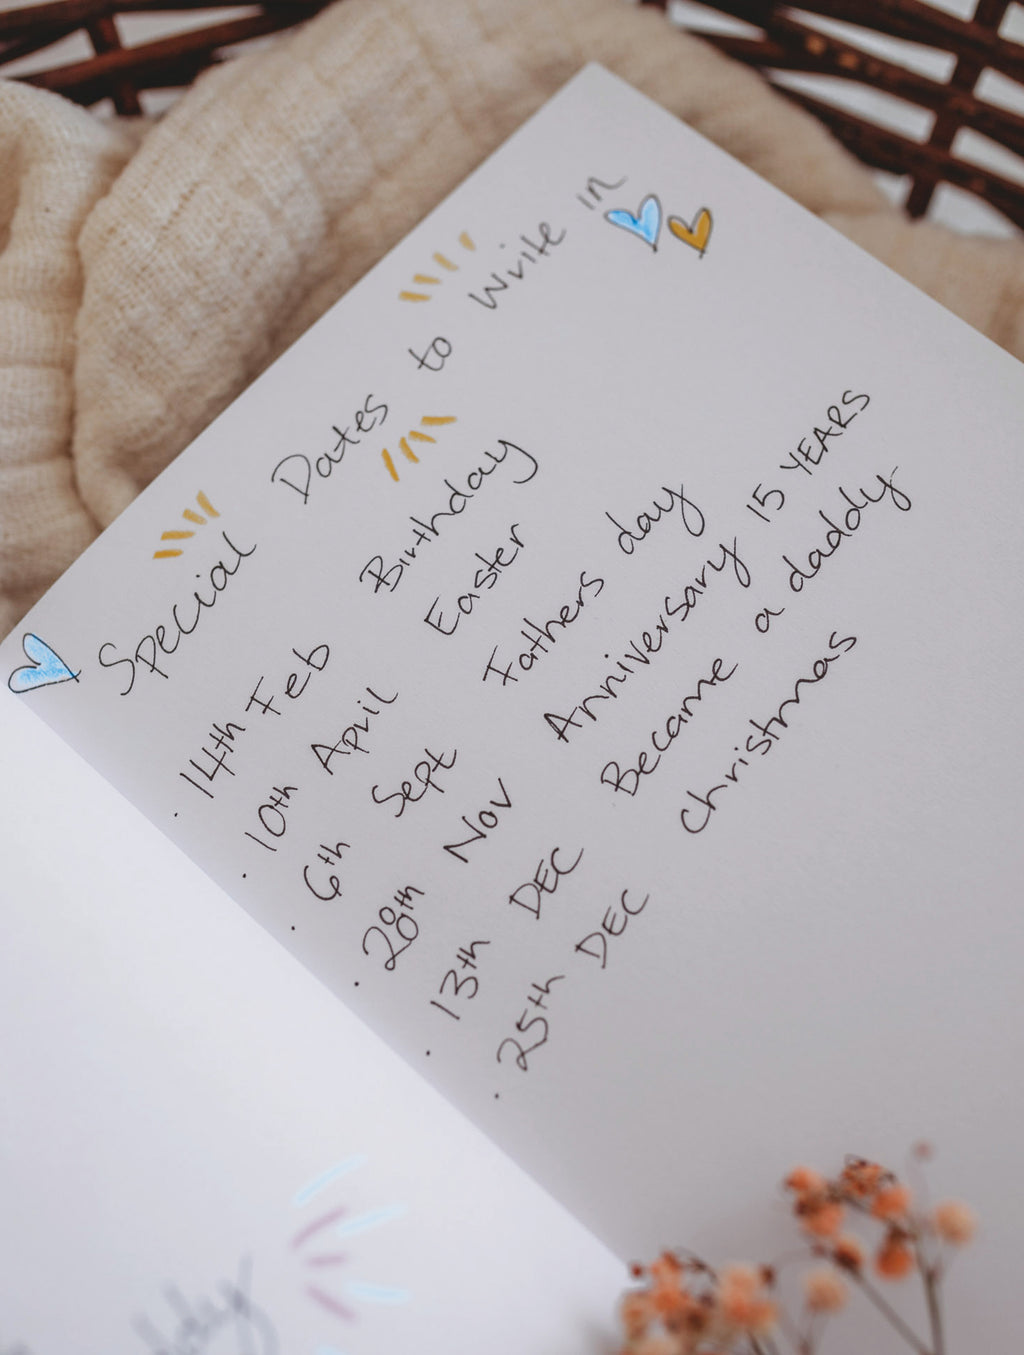 Special Dates to Write in
· 14th Feb Birthday
· 10th April Easter
· 6th Sept Fathers day
· 28th Nov Anniversary 15 YEARS
· 13th DEC Became a daddy
· 25th DEC Christmas